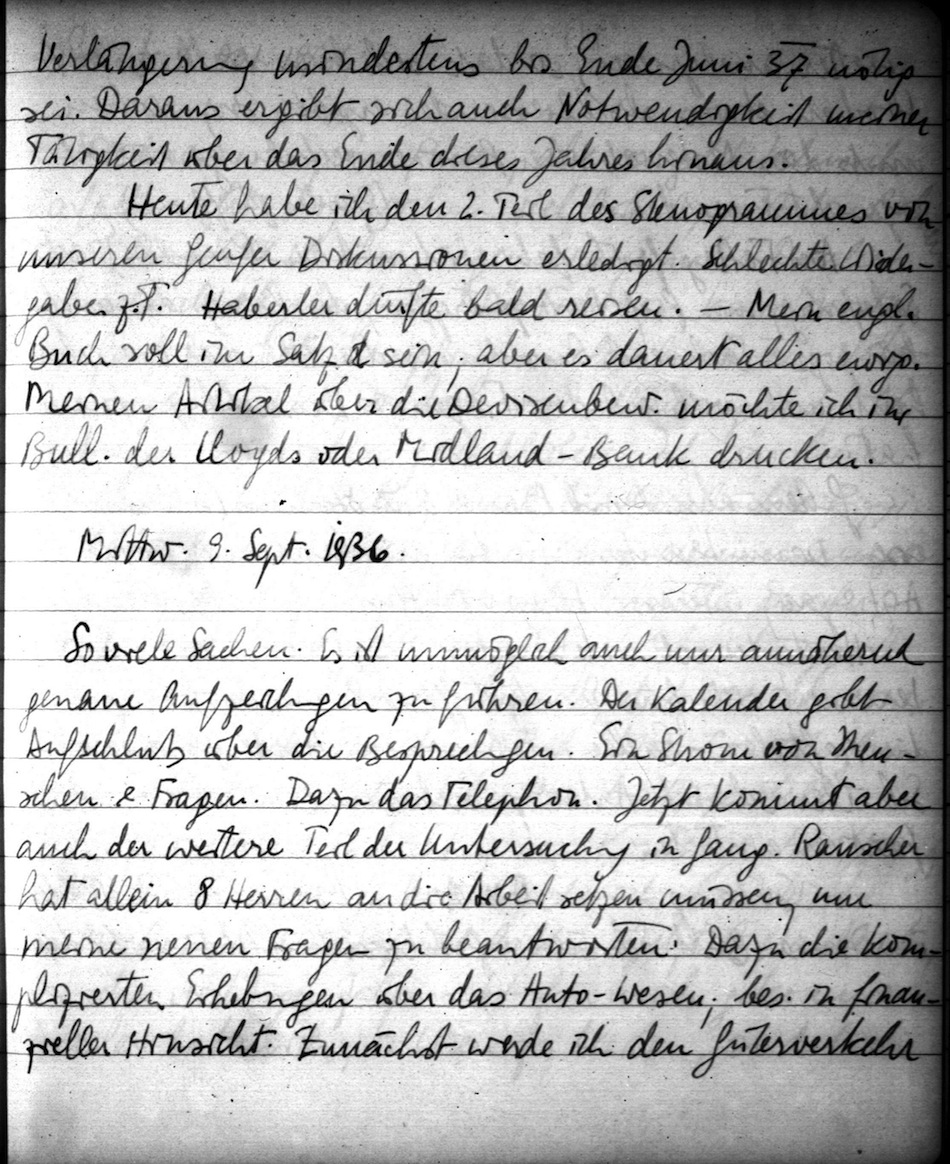 Verlängerung mindestens bis Ende Juni 37 nötig
sei. Daraus ergibt sich auch Notwendigkeit meiner
Tätigkeit über das Ende dieses Jahres hinaus.
Heute habe ich den 2. Teil des Stenogrammes von
unseren Genfer Diskussionen erledigt. Schlechte Wieder-
gabe z.T. Haberler dürfte bald reisen. – Mein engl.
Buch soll im Satz sein, aber es dauert alles ewig.
Meinen Artikel über die Devisenbew. möchte ich im
Bull. der Lloyds oder Midland-Bank drucken.
Mittw. 9. Sept. 1936.
So viele Sachen. Es ist unmöglich auch nur annähernd
genaue Aufzeichngen zu führen. Der Kalender gibt
Aufschluss über die Besprechgen. Ein Strom von Men-
schen & Fragen. Dazu das Telephon. Jetzt kommt aber
auch der weitere Teil der Untersuchg in Gang. Rauscher
hat allein 8 Herren an die Arbeit setzen müssen, um
meine neuen Fragen zu beantworten. Dazu die kom-
plizierten Erhebungen über das Auto-Wesen, bes. in finan-
zieller Hinsicht. Zunächst werde ich den Güterverkehr